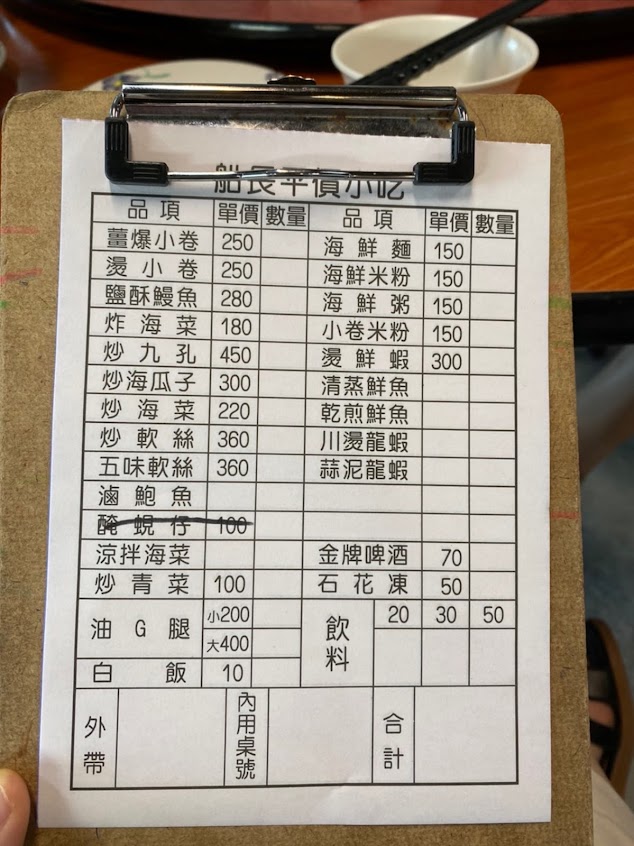 船長平價小吃
品項 單價 數量 品項 單價 數量
薑爆小卷 250 海鮮麵 150
燙小卷 250 海鮮米粉 150
鹽酥鰻魚 280 海鮮粥 150
炸海菜 180 小卷米粉 150
炒九孔 450 燙鮮蝦 300
炒海瓜子 300 清蒸鮮魚
炒海菜 220 乾煎鮮魚
炒軟絲 360 川燙龍蝦
五味軟絲 360 蒜泥龍蝦
滷鮑魚
醃蜆仔 100
涼拌海菜 金牌啤酒 70
炒青菜 100 石花凍 50
油G腿 小200 飲料 20 30 50
大400
白飯 10
外帶 內用桌號 合計